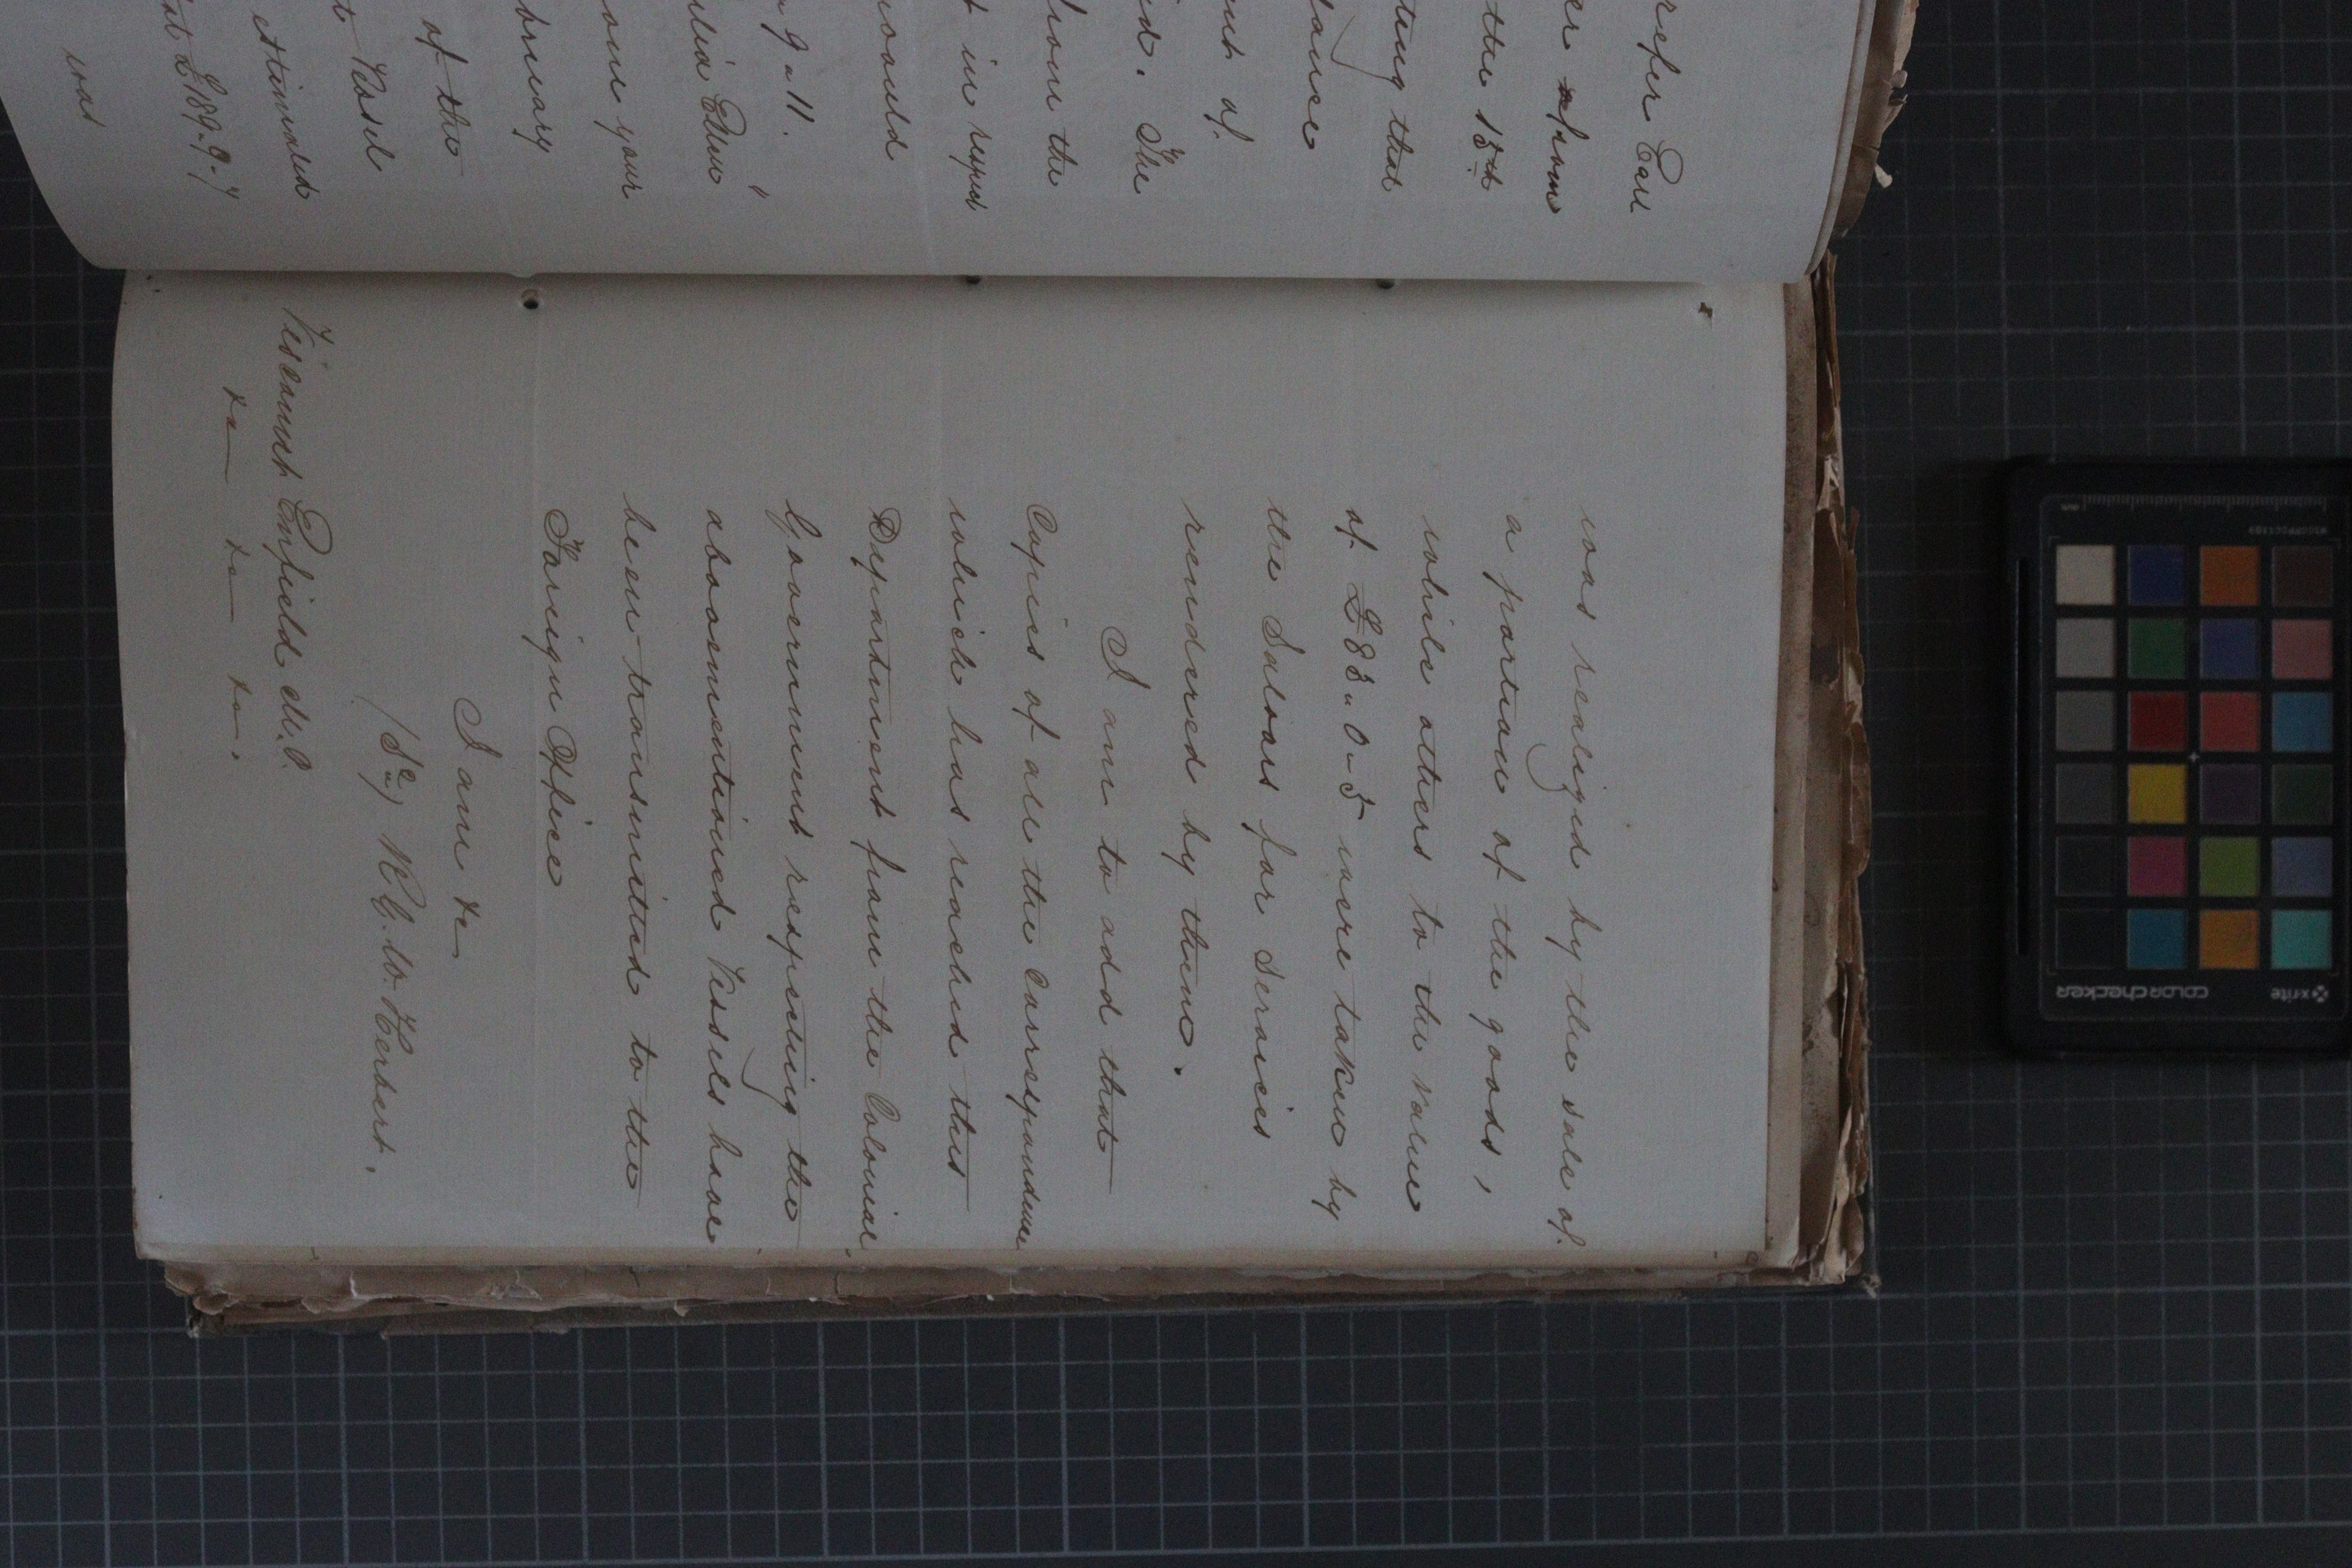 refer Earl
the 15th
ting that
of
The
from the
t in respect
would
" 9 " 11.
your
of the
t Vessel
estimated
at £189.9.7
was
was realized by the sale of
a portion of the goods,
while others to the value
of £88.. 0.. 5 were taken by
the Salvors for services
rendered by them.
I am to add that
Copies of all the Correspondence
which has reached this
Department from the Colonial
Government respecting the
abovementioned Vessels have
been transmitted to the
Foreign Office
I am &c
(Sd) R. G. W. Herbert.
Viscount Enfield M.P.
&c &c &c.
COLORCHECKER
x-rite